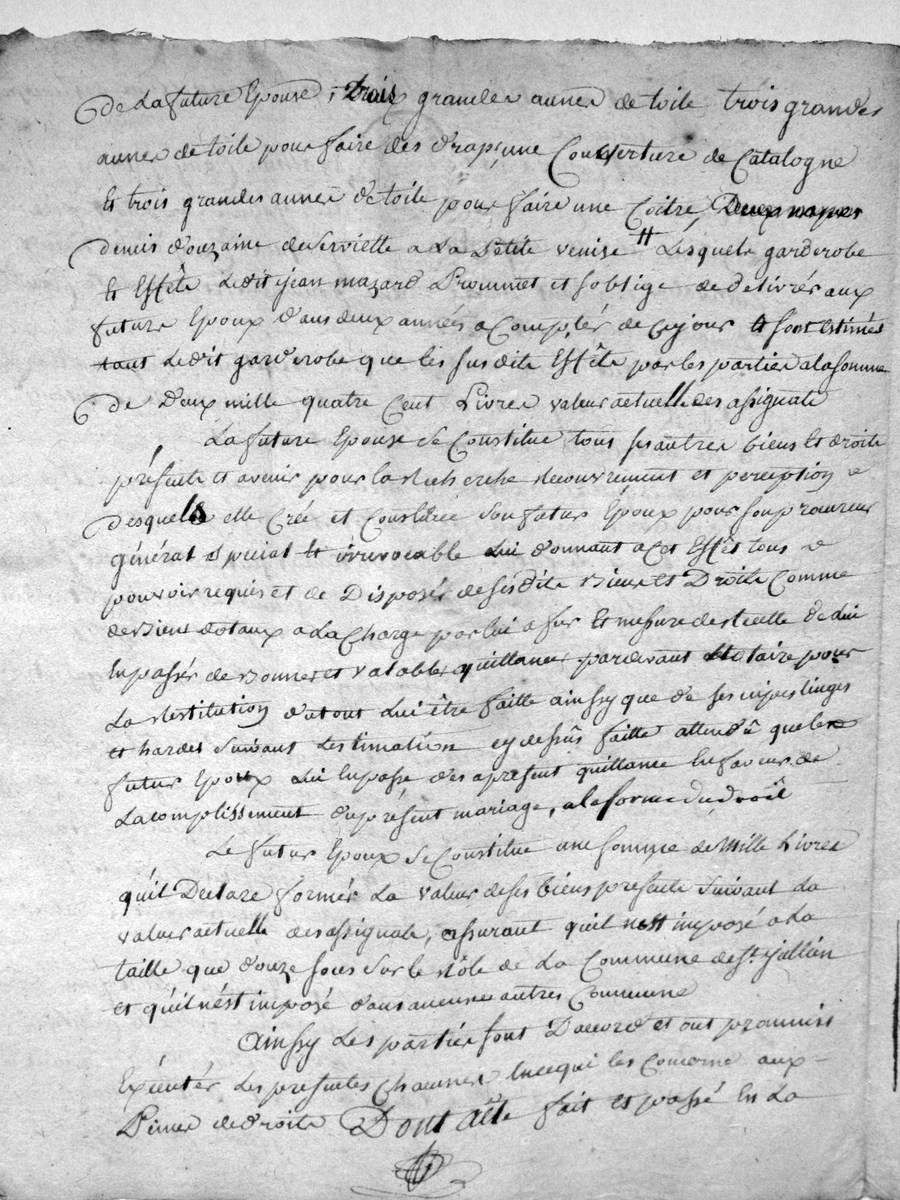 de La future Epouse, trois grandes aunes de toile trois grandes
aunes de toile pour faire des draps, une Couverture de Catalogne
Et trois grandes aunes de toile pour faire une Coitre, Deux napes
demis douzaine de Serviette a La Petite venise # Lesquels garderobe
Et Effêts Ledit jean mazard Prommet et soblige de delivrér aux
futurs Epoux dans deux années a Comptér de Cejour Et sont estimés
tant Ledit garderobe que les susdits Effêts par les parties a la somme
de deux mille quatre Cent Livres valeur actuelle des assignats
La future Epouse Se Constitue tous ses autres biens Et droits
présents et avenir pour la Recherche Recouvrement et perception
desquels elle Crée et Constitue son futur Epoux pour son procureur
général spécial Et irrevocable Lui donnant a Cet Effêt tous
pouvoir requis et de Disposér de sesdits Biens Et Droits Comme
de Biens dotaux a La Charge par lui a fur Et mesure de Recette de lui
En passér de Bonnes et valables quittances pardevant Notaire pour
La Restitution datout Lui être faitte ainssy que de ses nipes linges
et hardes Suivant Lestimation cy dessûs faitte attendû que le
futur Epoux Lui En passe des apresent quittance En faveur de
Lacomplissement du présent mariage, a la forme du droit
Le futur Epoux Se Constitue une somme de Mille Livres
quil Declare formér La valeur de ses biens presents Suivant La
valeur actuelle des assignats, assurant quil nest imposé a La
taille que douze sous Sur le Rôle de La Commune de St. jullien
et quil nést imposé dans aucunes autres Commune
Ainssy Les parties sont Daccord et ont prommis
Exécutér Les presentes Chacunes En ce qui les Concerne aux
Peines de droits Dont aête fait Et passé En La